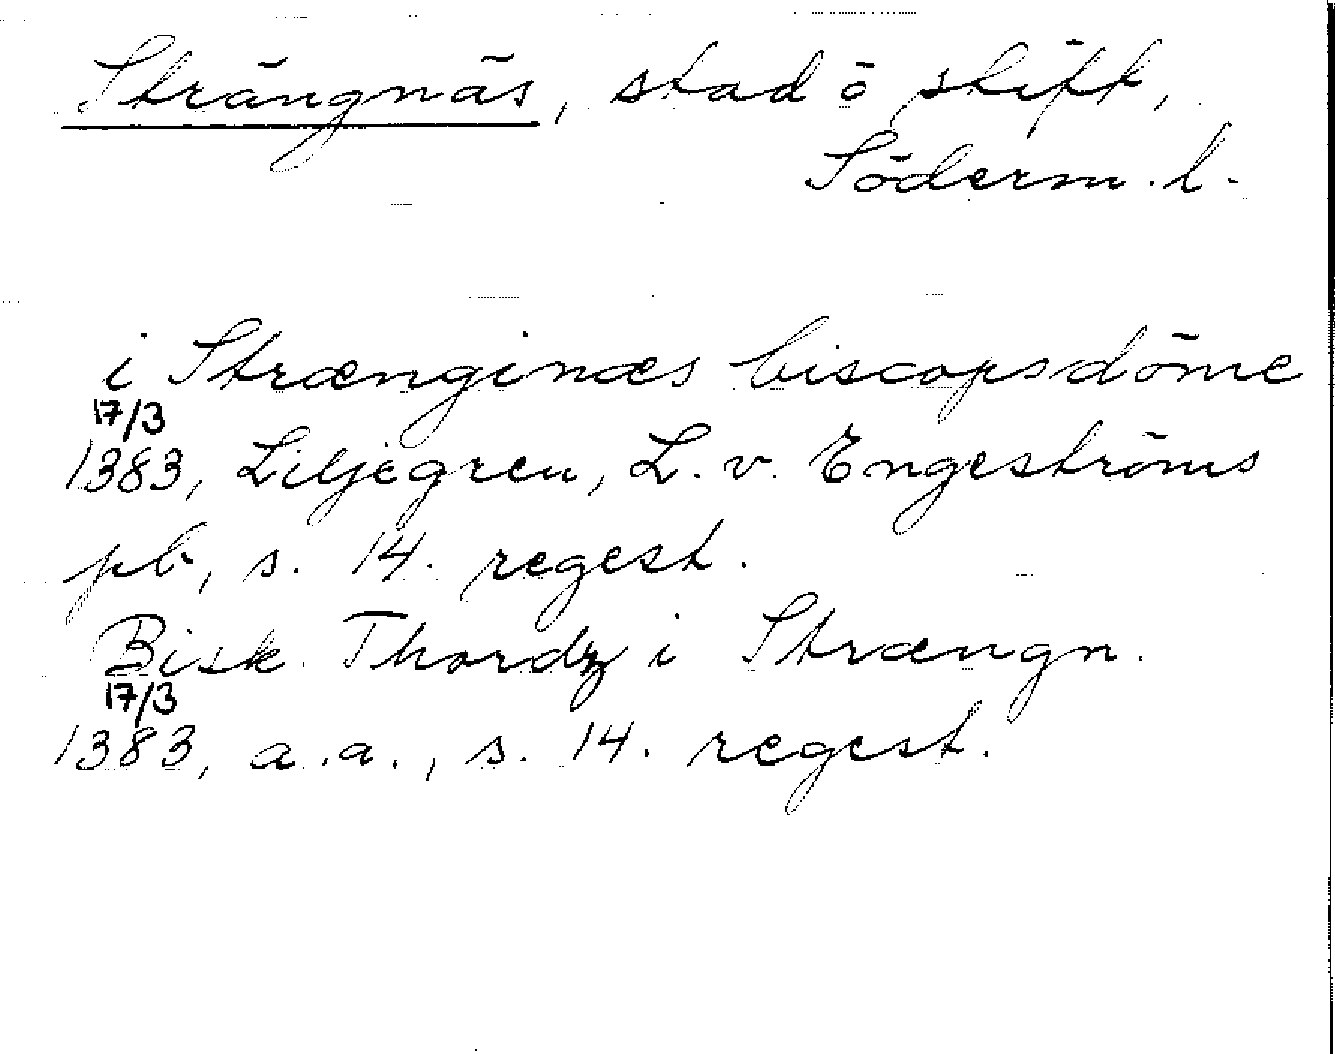 Strängnäs, stad o stift,
Söderm. l.
i Strænginæs biscopsdöme
17/3
1383, Liljegren, L. v. Engeströms
pb, s. 14. regest.
Bisk. Thordz i Strængn.
17/3
1383, a.a., s. 14. regest.